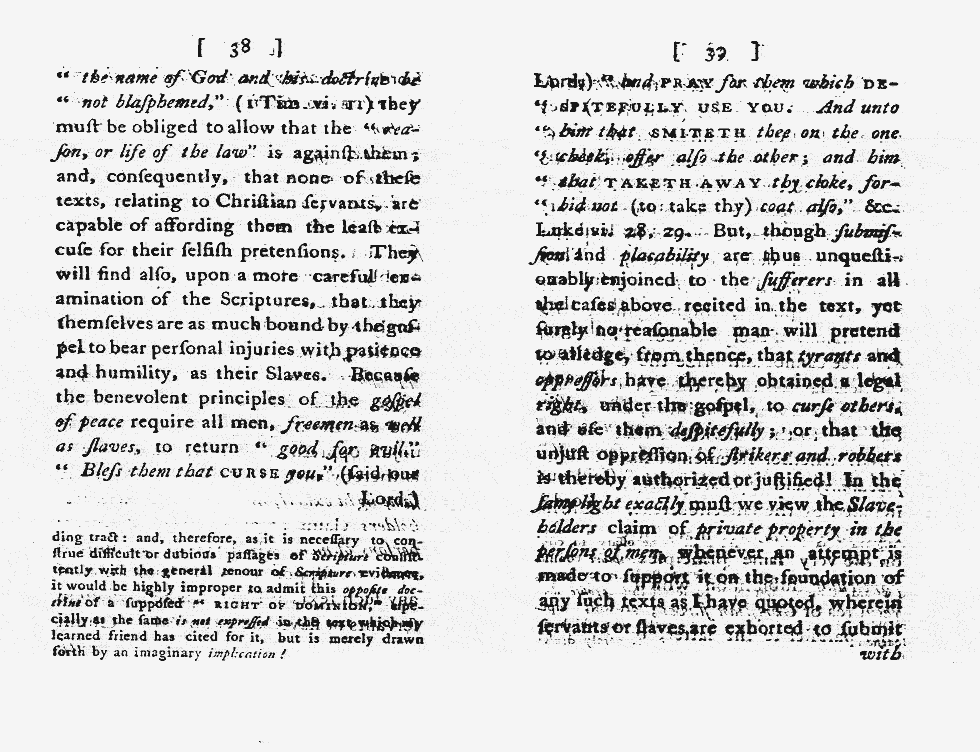 [ 38 ]
“ the name of God and his doctrine be
“ not blaſphemed,” (1 Tim. vi. 1) they
muſt be obliged to allow that the “rea-
ſon, or life of the law” is againſt them;
and, conſequently, that none of theſe
texts, relating to Chriſtian ſervants, are
capable of affording them the leaſt ex-
cuſe for their ſelfiſh pretenſions. They
will find alſo, upon a more careful ex-
amination of the Scriptures, that they
themſelves are as much bound by the goſ-
pel to bear perſonal injuries with patience
and humility, as their Slaves. Becauſe
the benevolent principles of the goſpel
of peace require all men, freemen as well
as ſlaves, to return “ good for evil.”
“ Bleſs them that CURSE you,” (ſaid our
Lord,)
ding tract: and, therefore, as it is neceſſary to con-
ſtrue difficult or dubious paſſages of Scripture conſiſ-
tently with the general tenour of Scripture evidence,
it would be highly improper to admit this oppoſite doc-
trine of a ſuppoſed “ RIGHT OF DOMINION,” eſpe-
cially as the ſame is not expreſſed in the text which my
learned friend has cited for it, but is merely drawn
forth by an imaginary implication !
[ 39 ]
Lord,) “ and PRAY for them which DE-
“ SPITEFULLY USE YOU. And unto
“ him that SMITETH thee on the one
“ cheek, offer alſo the other; and him
“ that TAKETH AWAY thy cloke, for-
“ bid not (to take thy) coat alſo,” &c.
Luke vi. 28, 29. But, though ſubmiſ-
ſion and placability are thus unqueſti-
onably enjoined to the ſufferers in all
the caſes above recited in the text, yet
ſurely no reaſonable man will pretend
to alledge, from thence, that tyrants and
oppreſſors have thereby obtained a legal
right, under the goſpel, to curſe others,
and uſe them deſpitefully; or that the
unjuſt oppreſſion of ſtrikers and robbers
is thereby authorized or juſtified! In the
ſame light exactly muſt we view the Slave-
holders claim of private property in the
perſons of men, whenever an attempt is
made to ſupport it on the foundation of
any ſuch texts as I have quoted, wherein
ſervants or ſlaves are exhorted to ſubmit
with